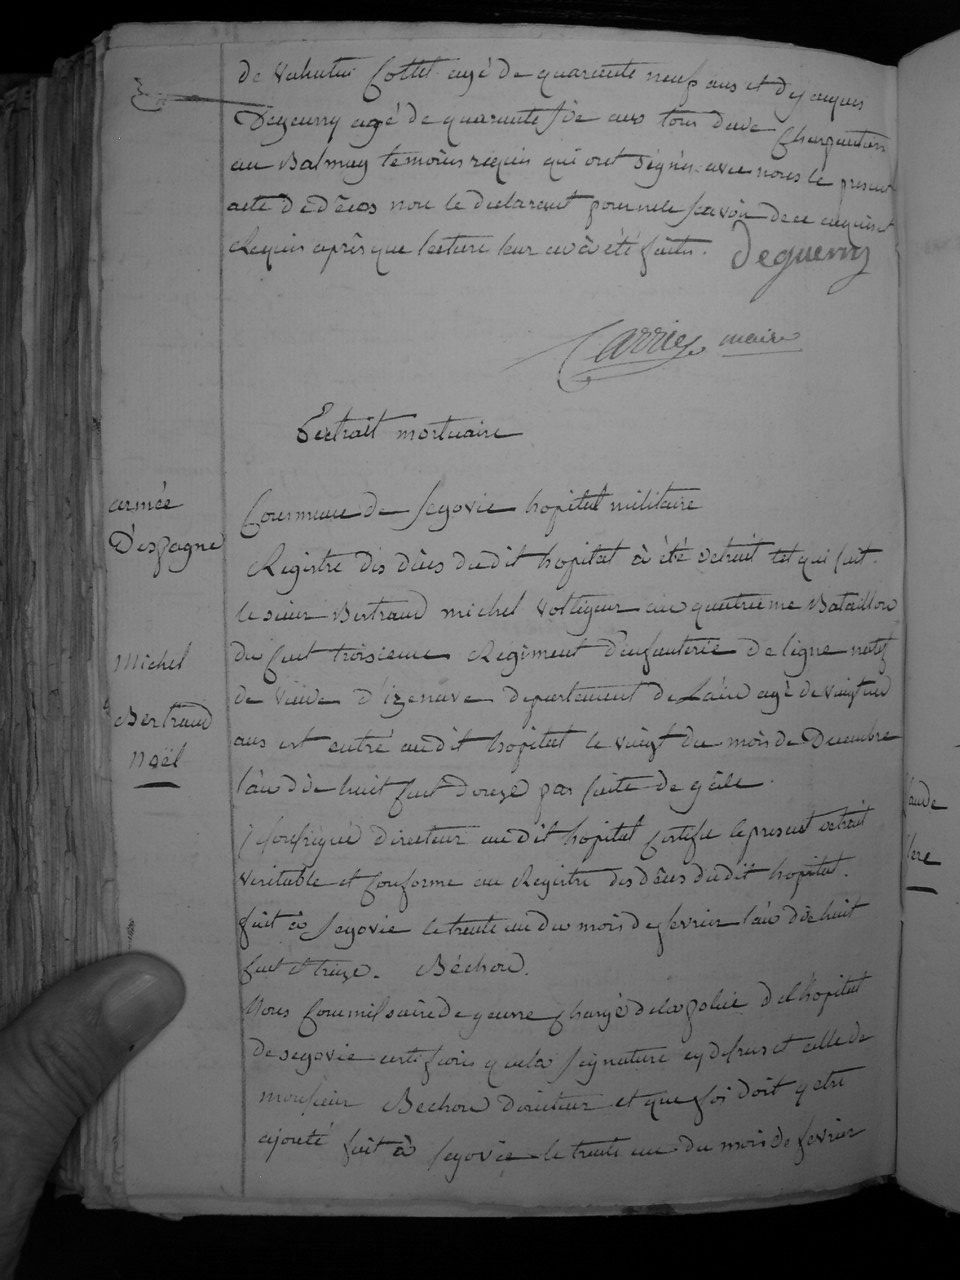 de Cottet agé de quarante neuf ans et de jacques
Deguerry agé de quarante six ans tous deux Charpentiers
au Balmay temoins requis qui ont signés avec nous le present
acte de décès non le declarant pour ne le scavoir de ce enquis et
Requis après que lecture leur en à été faite. Deguerry
Carrier maire
Extrait mortuaire
armée
D'espagne
Commune de Segovie hopital militaire
Registre des dèces dudit hopital à été extrait tet qui suit.
Michel
Bertrand
Noël
le sieur Bertrand michel Voltigeur au quatrieme Bataillon
du cent troisieme Regiment d'infanterie de ligne natif
de d'izenave departement de L'ain agé de vingt un
ans est entré audit hopital le vingt du mois de Decembre
l'an dix huit cent douze par suite de gâle.
j soussigné directeur audit hopital Certifie le present extrait
veritable et Conforme au Registre des dèces dudit hopital.
fait à Segovie le trente un du mois de fevrier l'an dix huit
cent treize. Béchon.
Nous Commissaire de guerre chargé de la police de l'hopital
de segovie certifions que la signature cy dessus et celle de
monsieur Bechon directeur et que foi doit y etre
ajouté fait à segovie le trente un du mois de fevrier